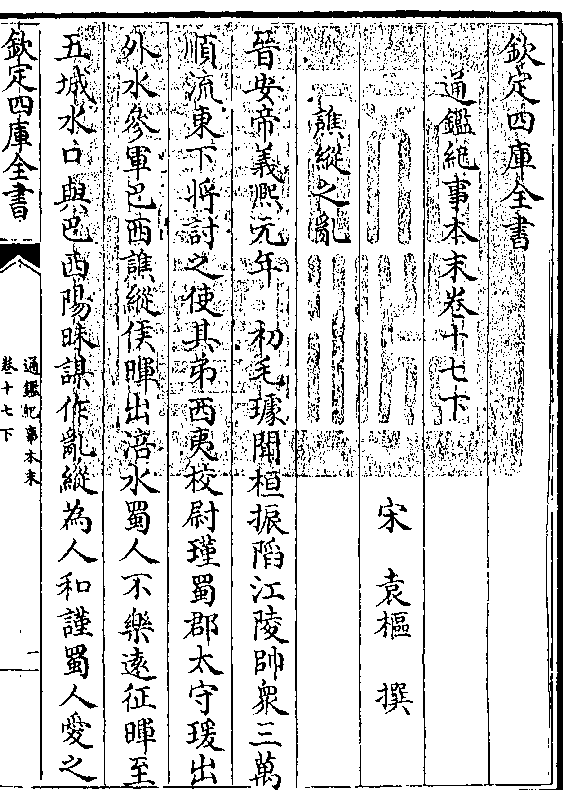 欽定四庫全書
通鑑紀事本末卷十七下
宋 袁樞 撰
譙縱之亂
晉安帝義熙元年 初毛璩聞桓振䧟江陵帥衆三萬
順流東下將討之使其弟西夷校尉瑾蜀郡太守瑗出
外水參軍巴西譙縱侯暉出涪水蜀人不樂遠征暉至
五城水口與巴西陽昧謀作亂縱為人和謹蜀人愛之
欽定四庫全書
通鑑紀事本末
卷十七下
一